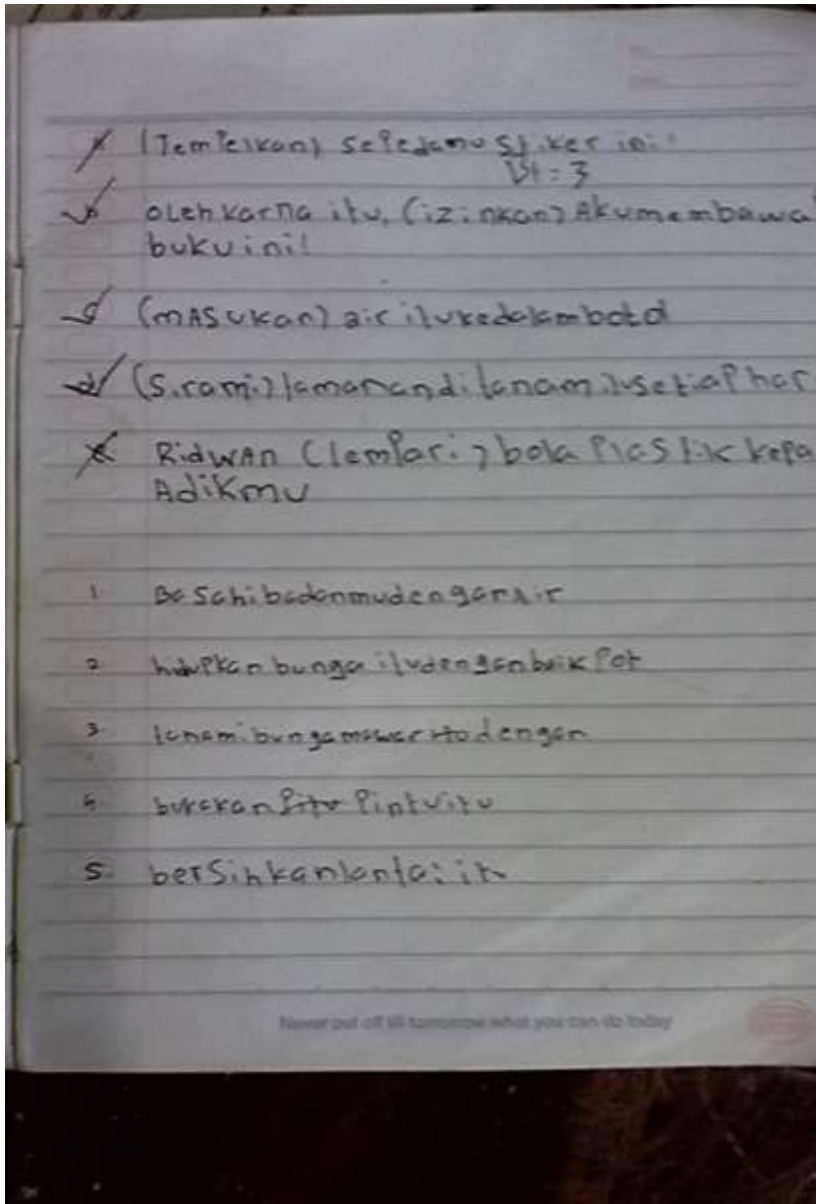 a (Tempelkan) sepedamu stiker ini!
B : 3
b oleh karna itu, (izinkan) Akumembawa
buku ini!
c (mASukan) air itukedalambotol
d (Sirami) tamanandi tanam itusetiap har
e RidwAn (lempari) bola PlaStik kepa
AdiKmu
1 BaSahibadanmudenganAir
2 hidupkanbunga itudenganbaik Pot
3. tanamibungamawar itodengan
4. bukakan Pintuitu
5. berSihkanlantai
Never put off till tomorrow what you can do today